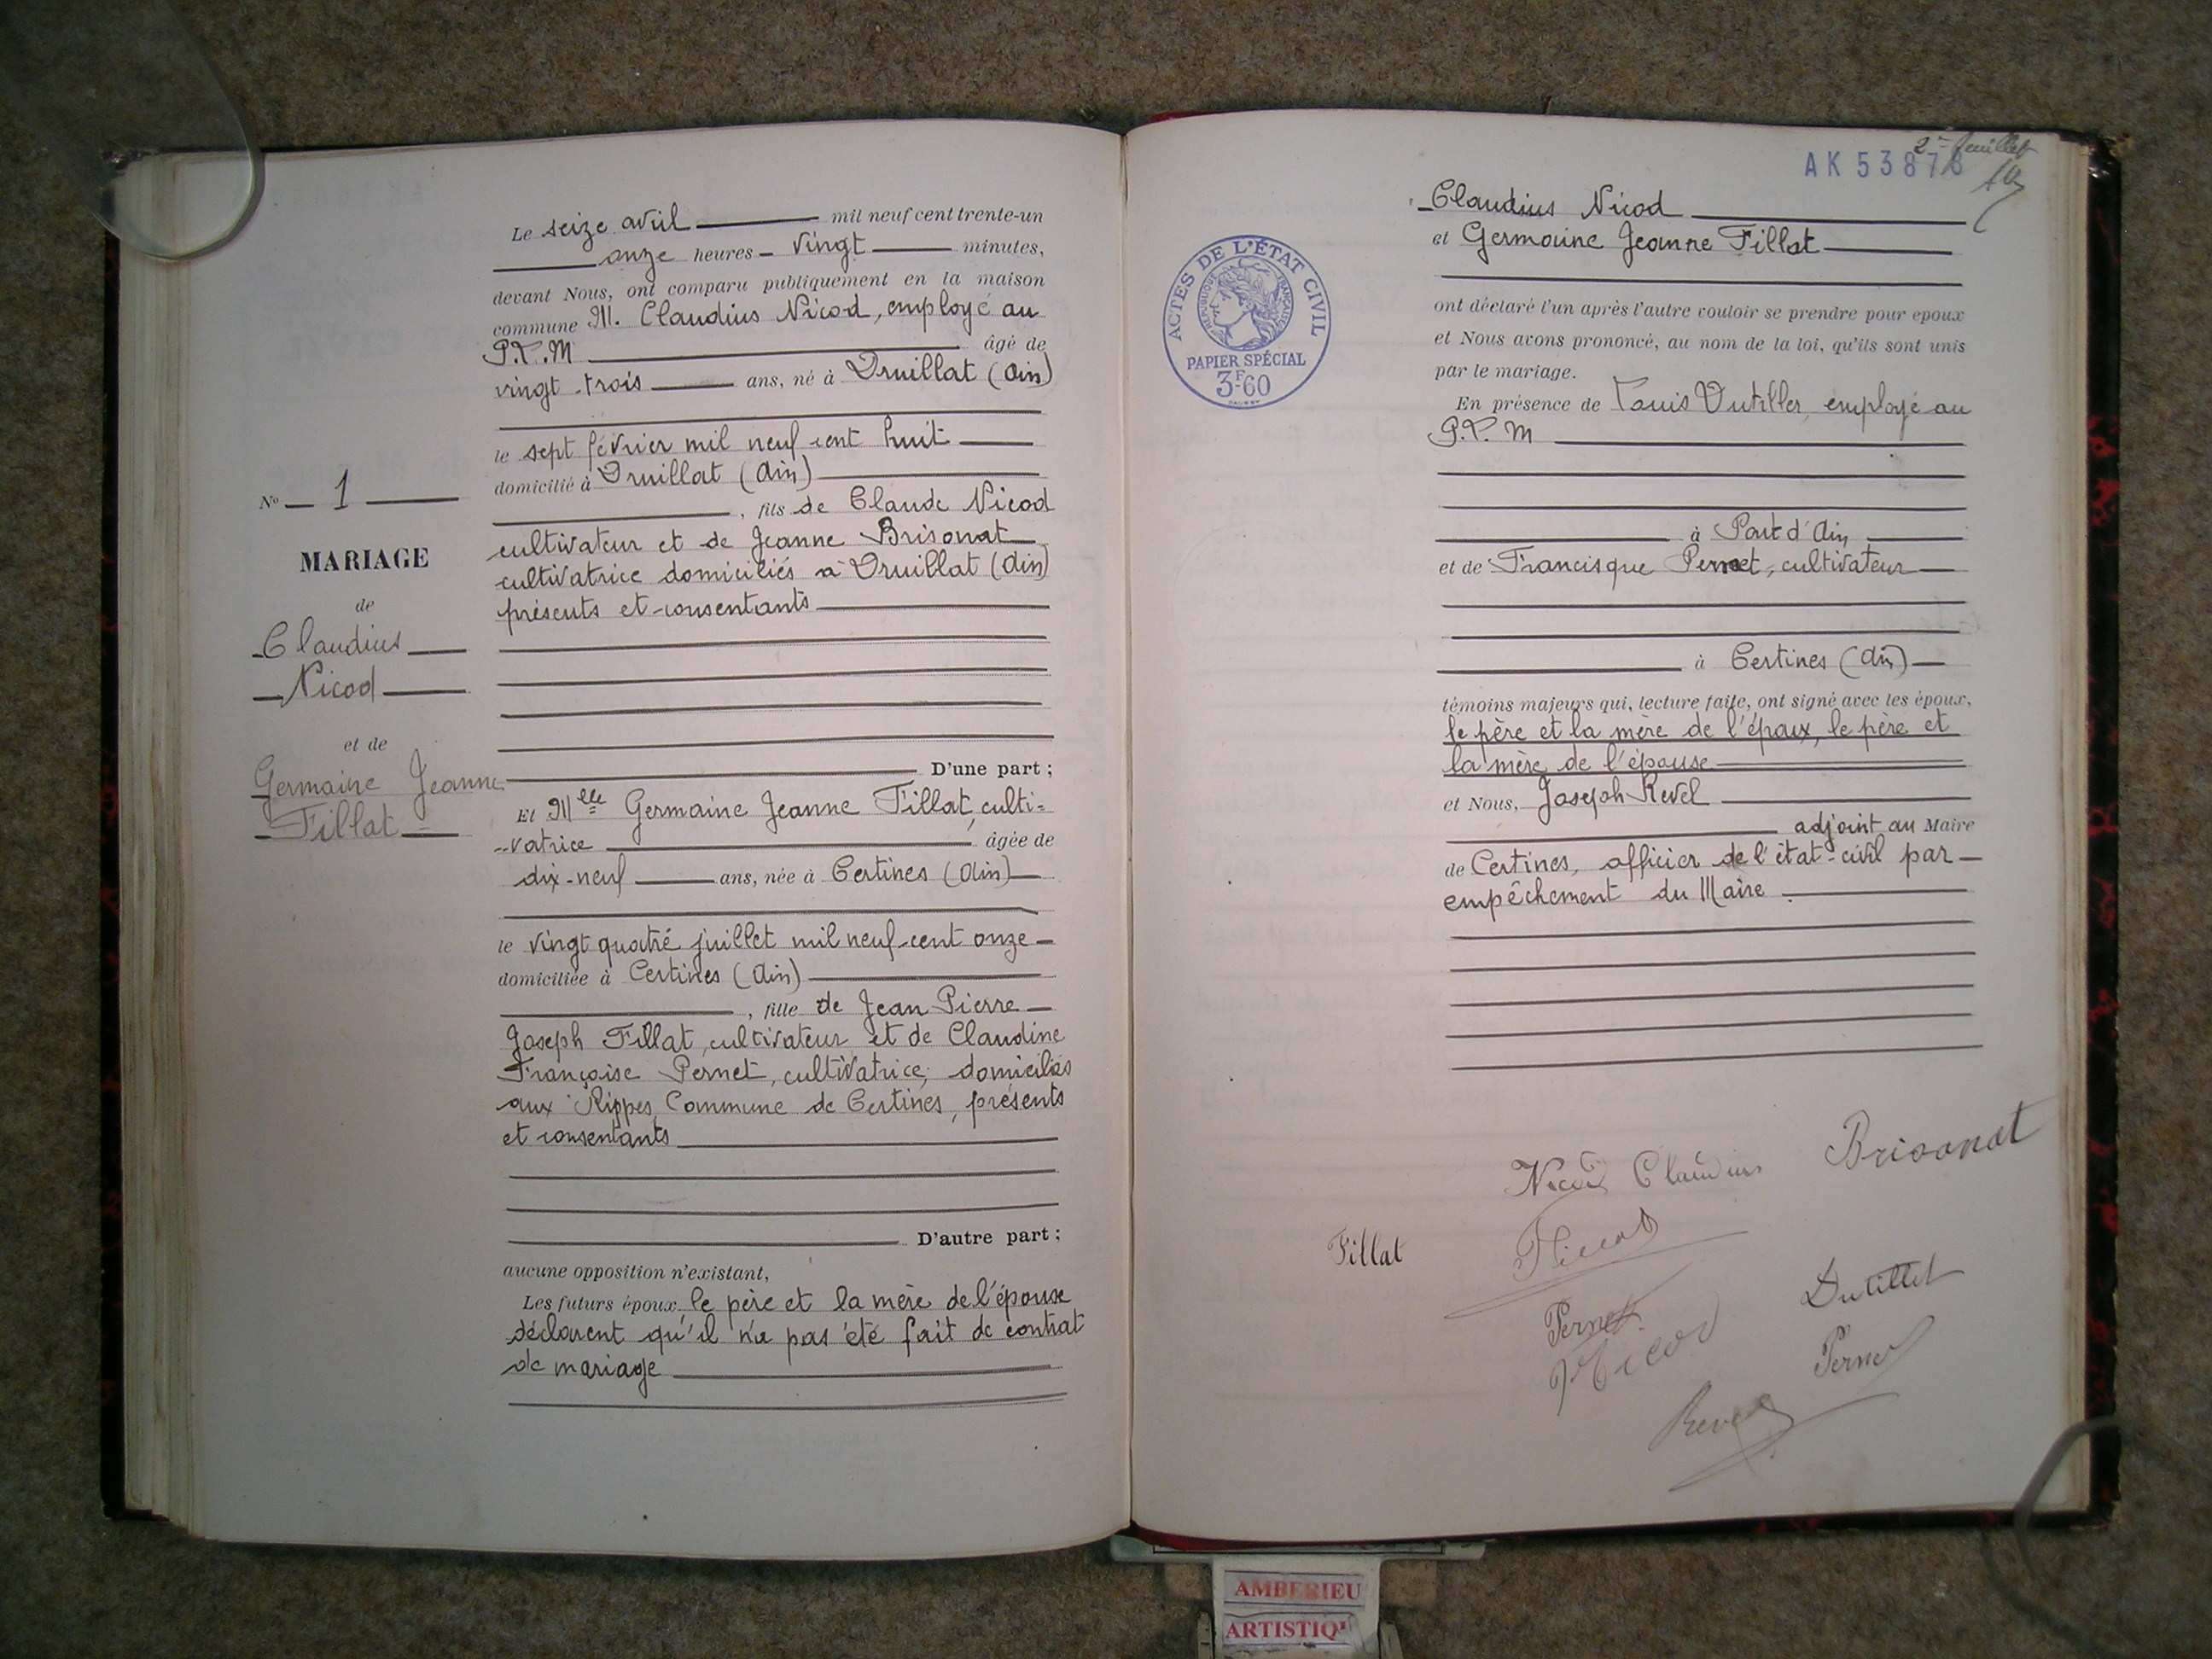 Le seize avril mil neuf cent trente-un
onze heures vingt minutes,
devant Nous, ont comparu publiquement en la maison
commune M. Claudius Nicod, employé au
P.L.M âgé de
vingt-trois ans, né à Druillat (Ain)
le sept février mil neuf cent huit
domicilié à Druillat (Ain)
, fils de Claude Nicod
cultivateur et de Jeanne Brisonat
cultivatrice domiciliés à Druillat (Ain)
présents et consentants
D'une part ;
Et Mlle Germaine Jeanne Fillat, culti-
-vatrice âgée de
dix-neuf ans, née à Certines (Ain)
le vingt quatre juillet mil neuf-cent onze
domiciliée à Certines (Ain)
, fille de Jean Pierre
Joseph Fillat, cultivateur et de Claudine
Françoise Pernet, cultivatrice, domiciliés
aux Rippes, Commune de Certines, présents
et consentants
D'autre part ;
aucune opposition n'existant,
Les futurs époux le père et la mère de l'épouse
déclarent qu'il n'a pas été fait de contrat
de mariage
No 1
MARIAGE
de
Claudius
Nicod
et de
Germaine Jeanne
Fillat
2e feuillet
AK 53878
ACTES DE L'ÉTAT CIVIL
RÉPUBLIQUE FRANÇAISE
PAPIER SPÉCIAL
3F60
Claudius Nicod
et Germaine Jeanne Fillat
ont déclaré l'un après l'autre vouloir se prendre pour epoux
et Nous avons prononcé, au nom de la loi, qu'ils sont unis
par le mariage.
En présence de Louis Dutiller, employé au
P.L.M
à Pont d'Ain
et de Francisque Pernet, cultivateur
à Certines (Ain)
témoins majeurs qui, lecture faite, ont signé avec les époux,
le père et la mère de l'époux, le père et
la mère de l'épouse
et Nous, Joseph Revel
adjoint au Maire
de Certines, officier de l'état-civil par
empêchement du Maire
Nicod Claudius Brisonat
Fillat
Nicod
Pernet
Dutillet
Nicod
Pernet
Revel
AMBERIEU
ARTISTIQU